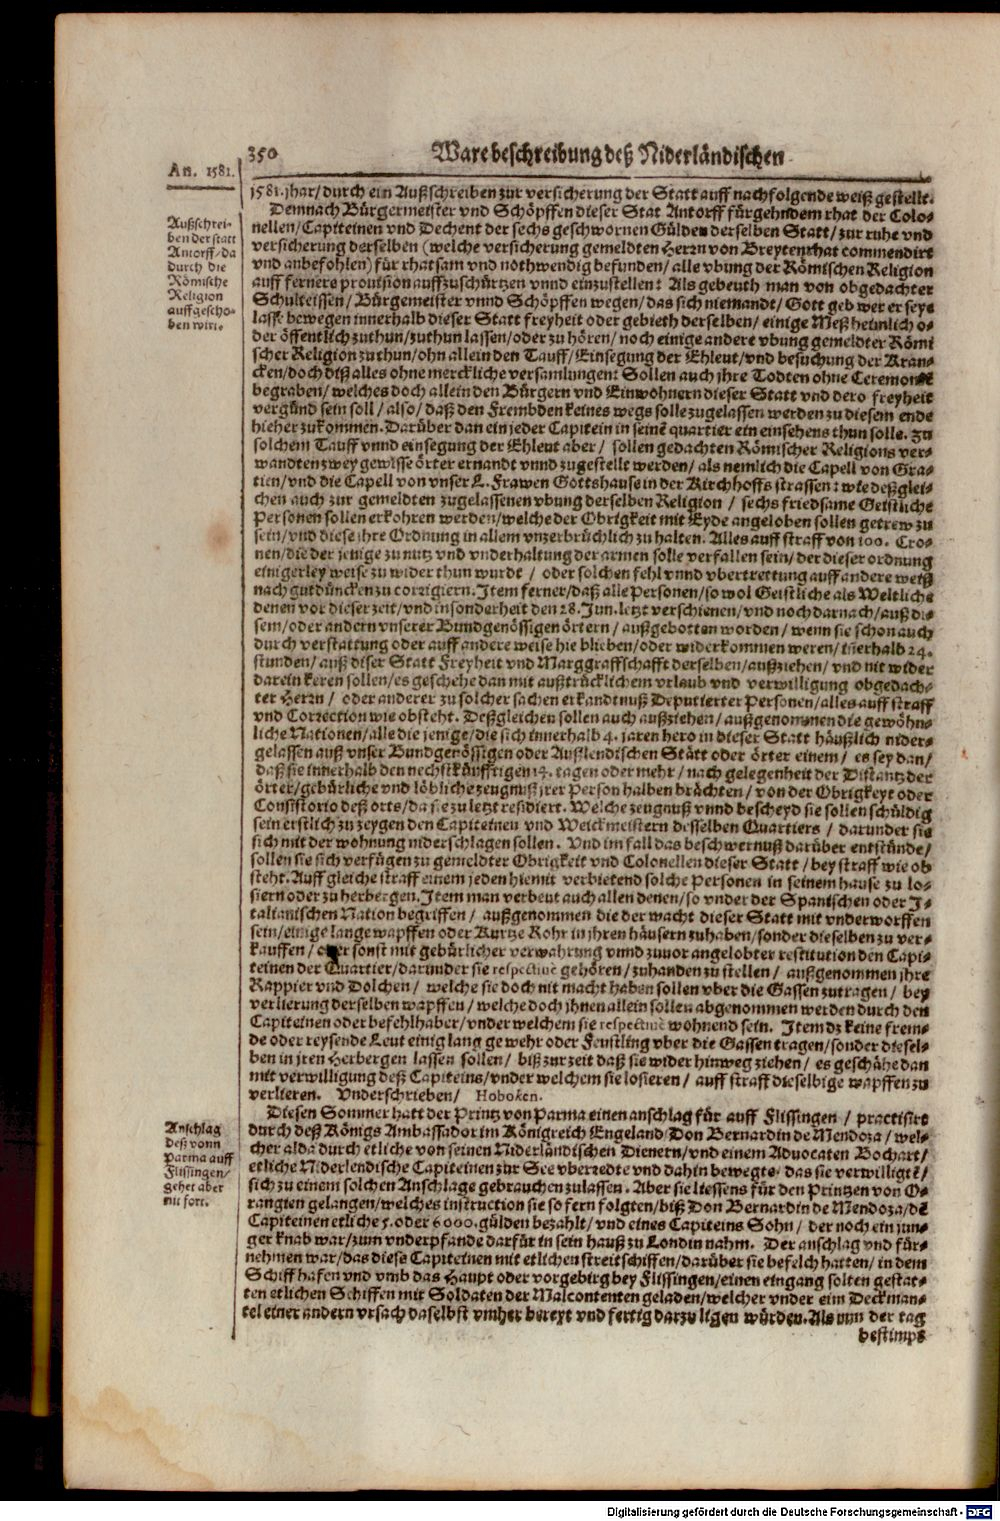 350
Ware beschreibung deß Niderländischen
An. 1581.
1581. jhar/ durch ein Außschreiben zur versicherung der Statt auff nachfolgende weiß gestellt.
Außschrei-
ben der statt
Antorff/ da
durch die
Römische
Religion
auffgescho-
ben wirt.
Demnach Bürgermeister vnd Schöpffen dieser Stat Antorff fürgehndem rhat der Colo-
nellen/ Capiteinen vnd Dechent der sechs geschwornen Gülden derselben Statt/ zur ruhe vnd
versicherung derselben (welche versicherung gemeldten Herrn von Breytenrhat commendirt
vnd anbefohlen) für rhatsam vnd nothwendig befunden/ alle vbung der Römischen Religion
auff fernere provision auffzuschürtzen vnnd einzustellen: Als gebeuth man von obgedachter
Schulteissen/ Bürgemeister vnnd Schöpffen wegen/ das sich niemandt/ Gott geb wer er seye
lasse bewegen innerhalb dieser Statt freyheit oder gebieth derselben/ einige Meß heimlich o-
der öffentlich zuthun/ zuthun lassen/ oder zu hören/ noch einige andere vbung gemeldter Römi
scher Religion zuthun/ ohn allein den Tauff/ Einsegung der Ehleut/ vnd besuchung der Kran-
cken/ doch diß alles ohne merckliche versamlungen: Sollen auch jhre Todten ohne Ceremonië
begraben/ welches doch allein den Bürgern vnd Einwohnern dieser Statt vnd dero freyheit
vergünd sein soll/ also/ daß den Frembden keines wegs solle zugelassen werden zu diesem ende
hieher zukommen. Darüber dan ein jeder Capitein in seinē quartier ein einsehens thun solle. Zu
solchem Tauff vnnd einsegung der Ehleut aber/ sollen gedachten Römischer Religions ver-
wandten zwey gewisse örter ernandt vnnd zugestellt werden/ als nemlich die Capell von Gra-
tien/ vnd die Capell von vnser L. Frawen Gottshause in der Kirchhoffs strassen: wie deßglei-
chen auch zur gemeldten zugelassenen vbung derselben Religion/ sechs friedsame Geistliche
Personen sollen erkohren werden/ welche der Obrigkeit mit Eyde angeloben sollen getrew zu
sein/ vnd diese jhre Ordnung in allem vnzerbrüchlich zu halten. Alles auff straff von 100. Cro-
nen/ die der jenige zu nutz vnd vnderhaltung der armen solle verfallen sein/ der dieser ordnung
einigerley weise zu wider thun wurdt/ oder solchen fehl vnnd vbertrettung auff andere weiß
nach gutdüncken zu corrigiern. Item ferner/ daß alle Personen/ so wol Geistliche als Weltliche
denen vor dieser zeit/ vnd insonderheit den 28. Jun. letzt verschienen/ vnd noch darnach/ auß die-
sem/ oder andern vnserer Bundgenössigen örtern/ außgebotten worden/ wenn sie schon auch
durch verstattung oder auff andere weise hie blieben/ oder widerkommen weren/ inerhalb 24.
stunden/ auß diser Statt Freyheit vnd Marggraffschafft derselben/ außziehen/ vnd nit wider
darein keren sollen/ es geschehe dan mit außtrücklichem vrlaub vnd verwilligung obgedach-
ter Herrn/ oder anderer zu solcher sachen erkandtnuß Deputierter Personen/ alles auff straff
vnd Correction wie obsteht. Deßgleichen sollen auch außziehen/ außgenommen die gewöhn-
liche Nationen/ alle die jenige/ die sich innerhalb 4. jaren hero in dieser Statt häußlich nider-
gelassen auß vnser Bundgenössigen oder Außlendischen Stätt oder örter einem/ es sey dan/
daß sie innerhalb den nechstkünfftigen 14. tagen oder mehr/ nach gelegenheit der Distantz der
örter/ gebürliche vnd löbliche zeugnuß jrer Person halben brächten/ von der Obrigkeyt oder
Consistorio deß orts/ da sie zu letzt residiert. Welche zeugnuß vnnd bescheyd sie sollen schüldig
sein erstlich zu zeygen den Capiteinen vnd Weickmeistern desselben Quartiers/ darunder sie
sich mit der wohnung niderschlagen sollen. Vnd im fall das beschwernuß darüber entstünde/
sollen sie sich verfügen zu gemeldter Obrigkeit vnd Colonellen dieser Statt/ bey straff wie ob
steht. Auff gleiche straff einem jeden hiemit verbietend solche Personen in seinem hause zu lo-
siern oder zu herbergen. Item man verbeut auch allen denen/ so vnder der Spanischen oder J-
talianischen Nation begriffen/ außgenommen die der wacht dieser Statt mit vnderworffen
sein/ einige lange wapffen oder Kurtze Rohr in jhren häusern zuhaben/ sonder dieselben zu ver-
kauffen/ oder sonst mit gebürlicher verwahrung vnnd zuvor angelobter restitution den Capi-
teinen der Quartier/ darunder sie respectivè gehören/ zuhanden zu stellen/ außgenommen jhre
Rappier vnd Dolchen/ welche sie doch nit macht haben sollen vber die Gassen zutragen/ bey
verlierung derselben wapffen/ welche doch jhnen allein sollen abgenommen werden durch den
Capiteinen oder befehlhaber/ vnder welchem sie respectivè wohnend sein. Item dz keine frem-
de oder reysende Leut einig lang gewehr oder Feustling vber die Gassen tragen/ sonder diesel-
ben in jren Herbergen lassen sollen/ biß zur zeit daß sie wider hinweg ziehen/ es geschähe dan
mit verwilligung deß Capiteins/ vnder welchem sie losieren/ auff straff dieselbige wapffen zu
verlieren. Vnderschrieben/ Hoboken.
Anschlag
deß vonn
Parma auff
Flissingen/
gehet aber
nit fort.
Diesen Sommer hatt der Printz von Parma einen anschlag für auff Flissingen/ practisirt
durch deß Königs Ambassador im Königreich Engeland/ Don Bernardin de Mendoza/ wel-
cher alda durch etliche von seinen Niderländischen Dienern/ vnd einem Advocaten Bochart/
etliche Niderlendische Capiteinen zur See vberredte vnd dahin bewegte/ das sie verwilligtē/
sich zu einem solchen Anschlage gebrauchen zulassen. Aber sie liessens für den Printzen von O-
rangien gelangen/ welches instruction sie so fern folgten/ biß Don Bernardin de Mendoza/ dē
Capiteinen etliche 5. oder 6000. gülden bezahlt/ vnd eines Capiteins Sohn/ der noch ein jun-
ger knab war/ zum vnderpfande darfür in sein hauß zu Londin nahm. Der anschlag vnd für-
nehmen war/ das diese Capiteinen mit etlichen streitschiffen/ darüber sie befelch hatten/ in dem
Schiffhafen vnd vmb das Haupt oder vorgebirg bey Flissingen/ einen eingang solten gestat-
ten etlichen Schiffen mit Soldaten der Malcontenten geladen/ welcher vnder eim Deckman-
tel einer andern vrsach daselbst vmher bereyt vnd fertig darzu ligen würden. Als nun der tag
bestimpt
Digitalisierung gefördert durch die Deutsche Forschungsgemeinschaft - DFG